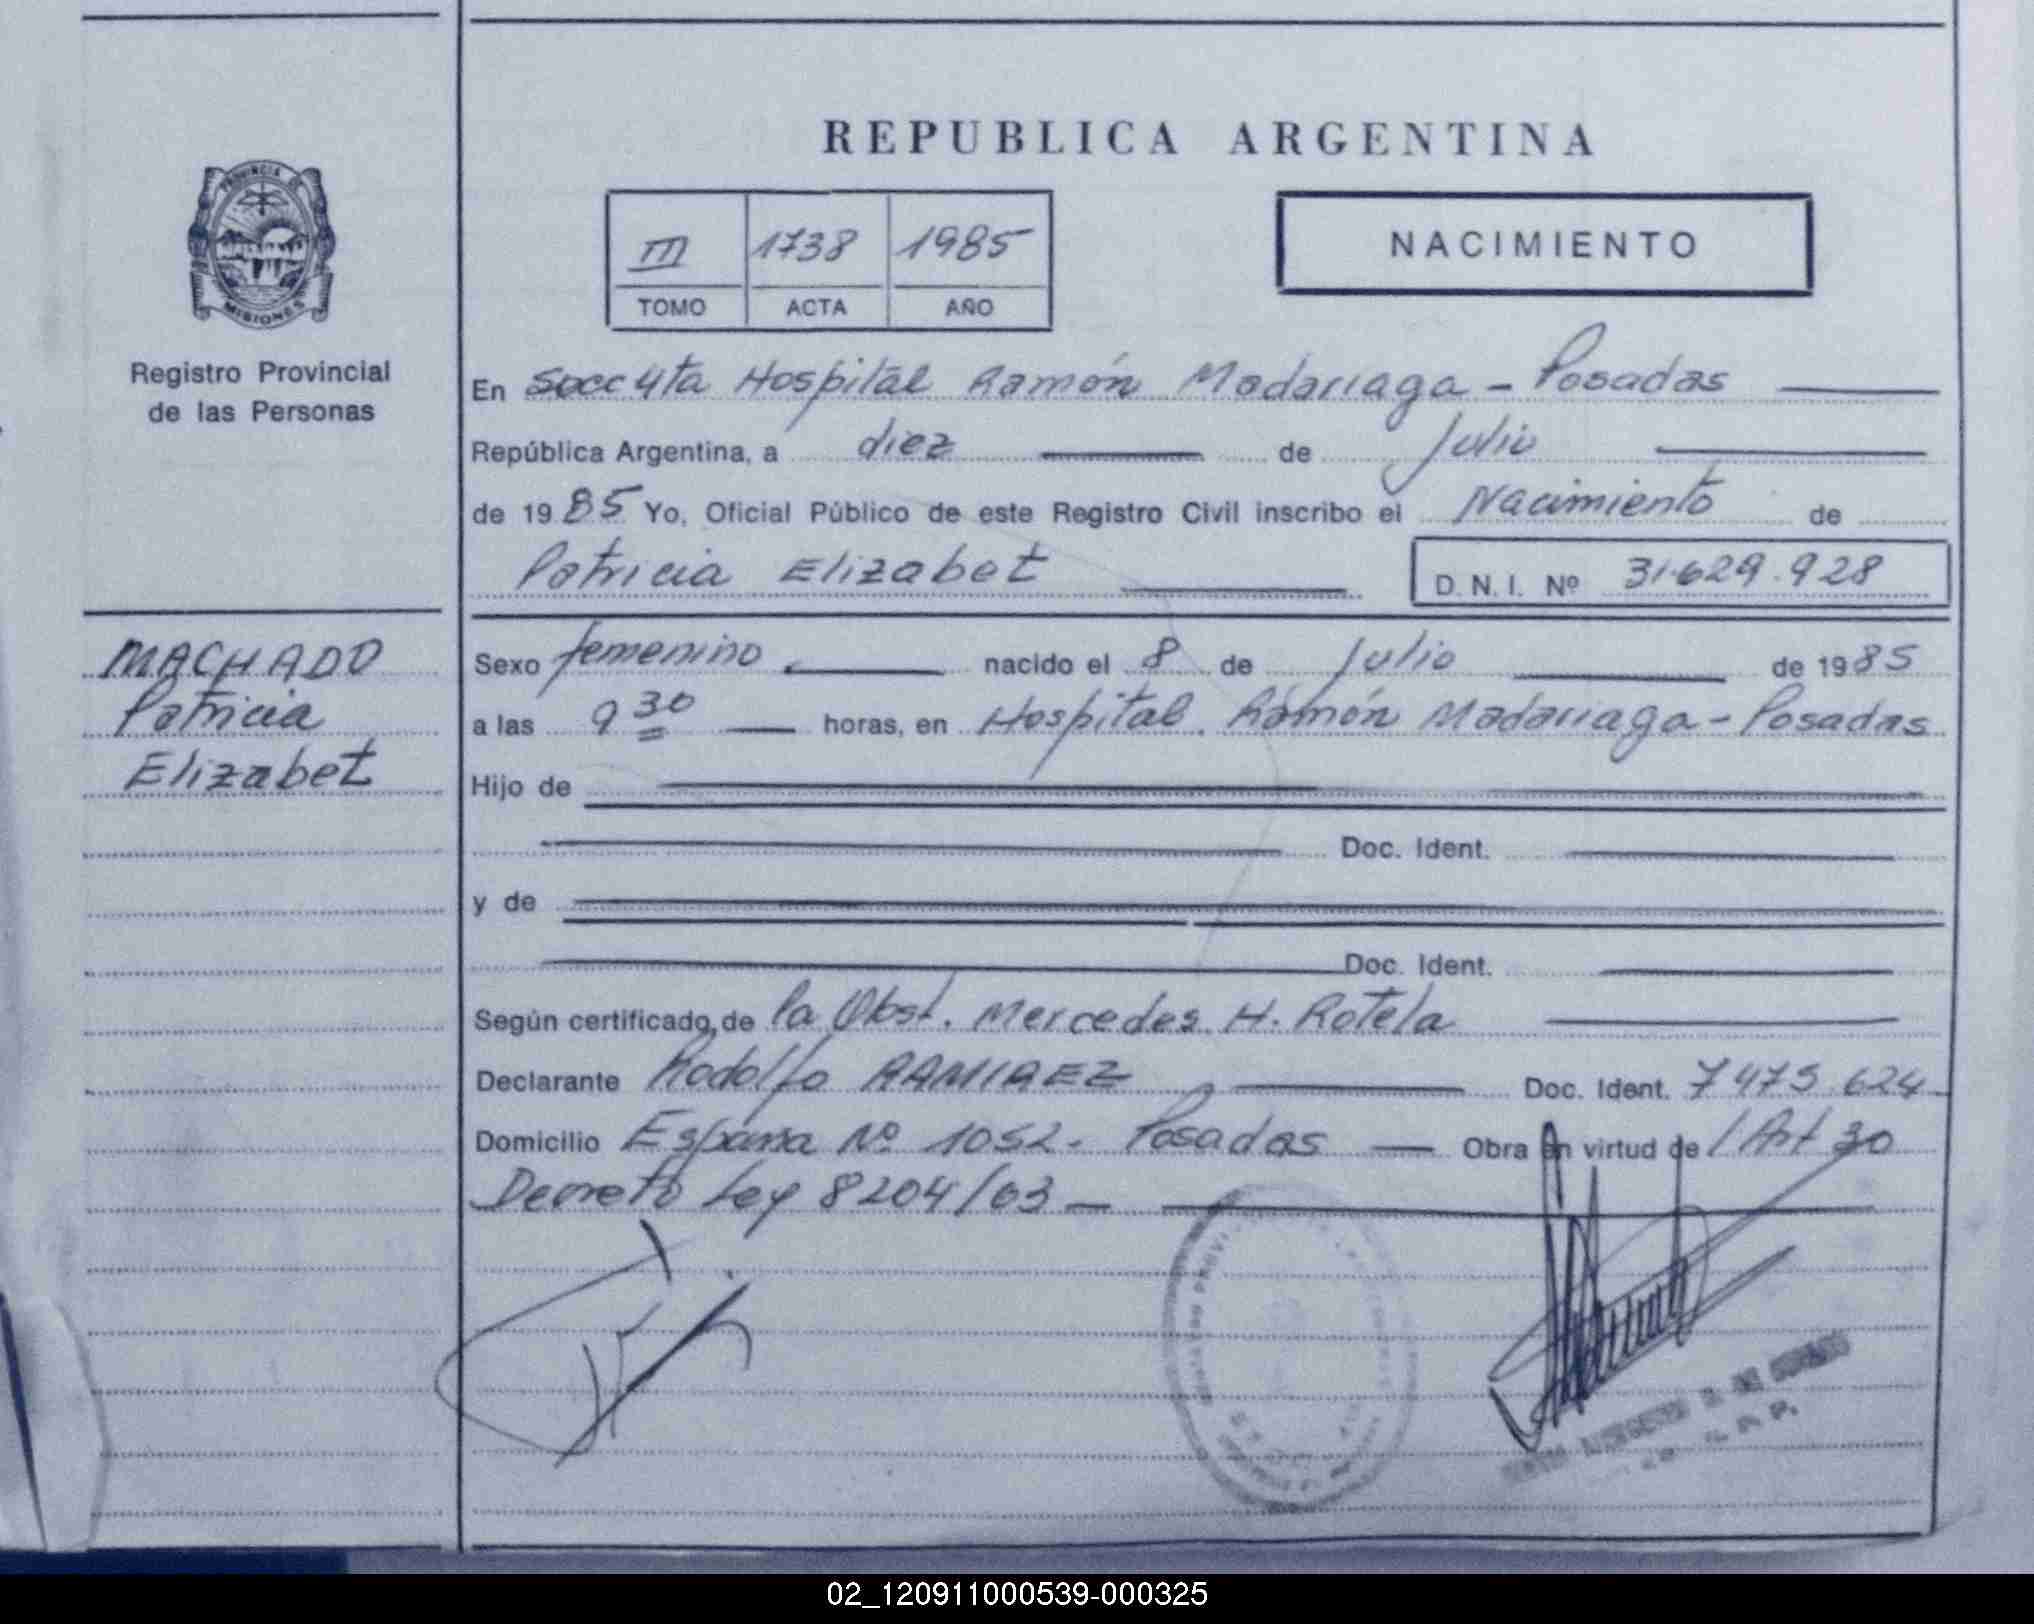 REPUBLICA ARGENTINA
PROVINCIA DE
MISIONES
Registro Provincial
de las Personas
III 1738 1985
TOMO ACTA AÑO
NACIMIENTO
En Secc 4ta Hospital Ramón Madariaga - Posadas
República Argentina, a diez de Julio
de 1985 Yo, Oficial Público de este Registro Civil inscribo el Nacimiento de
Patricia Elizabet D. N. I. Nº 31.629.928
MACHADO
Patricia
Elizabet
Sexo femenino nacido el 8 de Julio de 1985
a las 9 30 horas, en Hospital Ramón Madariaga - Posadas
Hijo de
Doc. Ident.
y de
Doc. Ident.
Según certificado de la Obst. Mercedes H. Rotela
Declarante Rodolfo RAMIREZ Doc. Ident. 7475.624
Domicilio España Nº 1052. Posadas Obra en virtud de / Art 30
Decreto Ley 8204/63
02_120911000539-000325